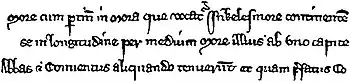 more cum ꝑtin̄ in mora que vocat᷑ Inkelesmore continentē
se in longitudine per medium more illius ab uno capite
Abbas & Conventus aliquando tenuerunt et quam Prefatus Co